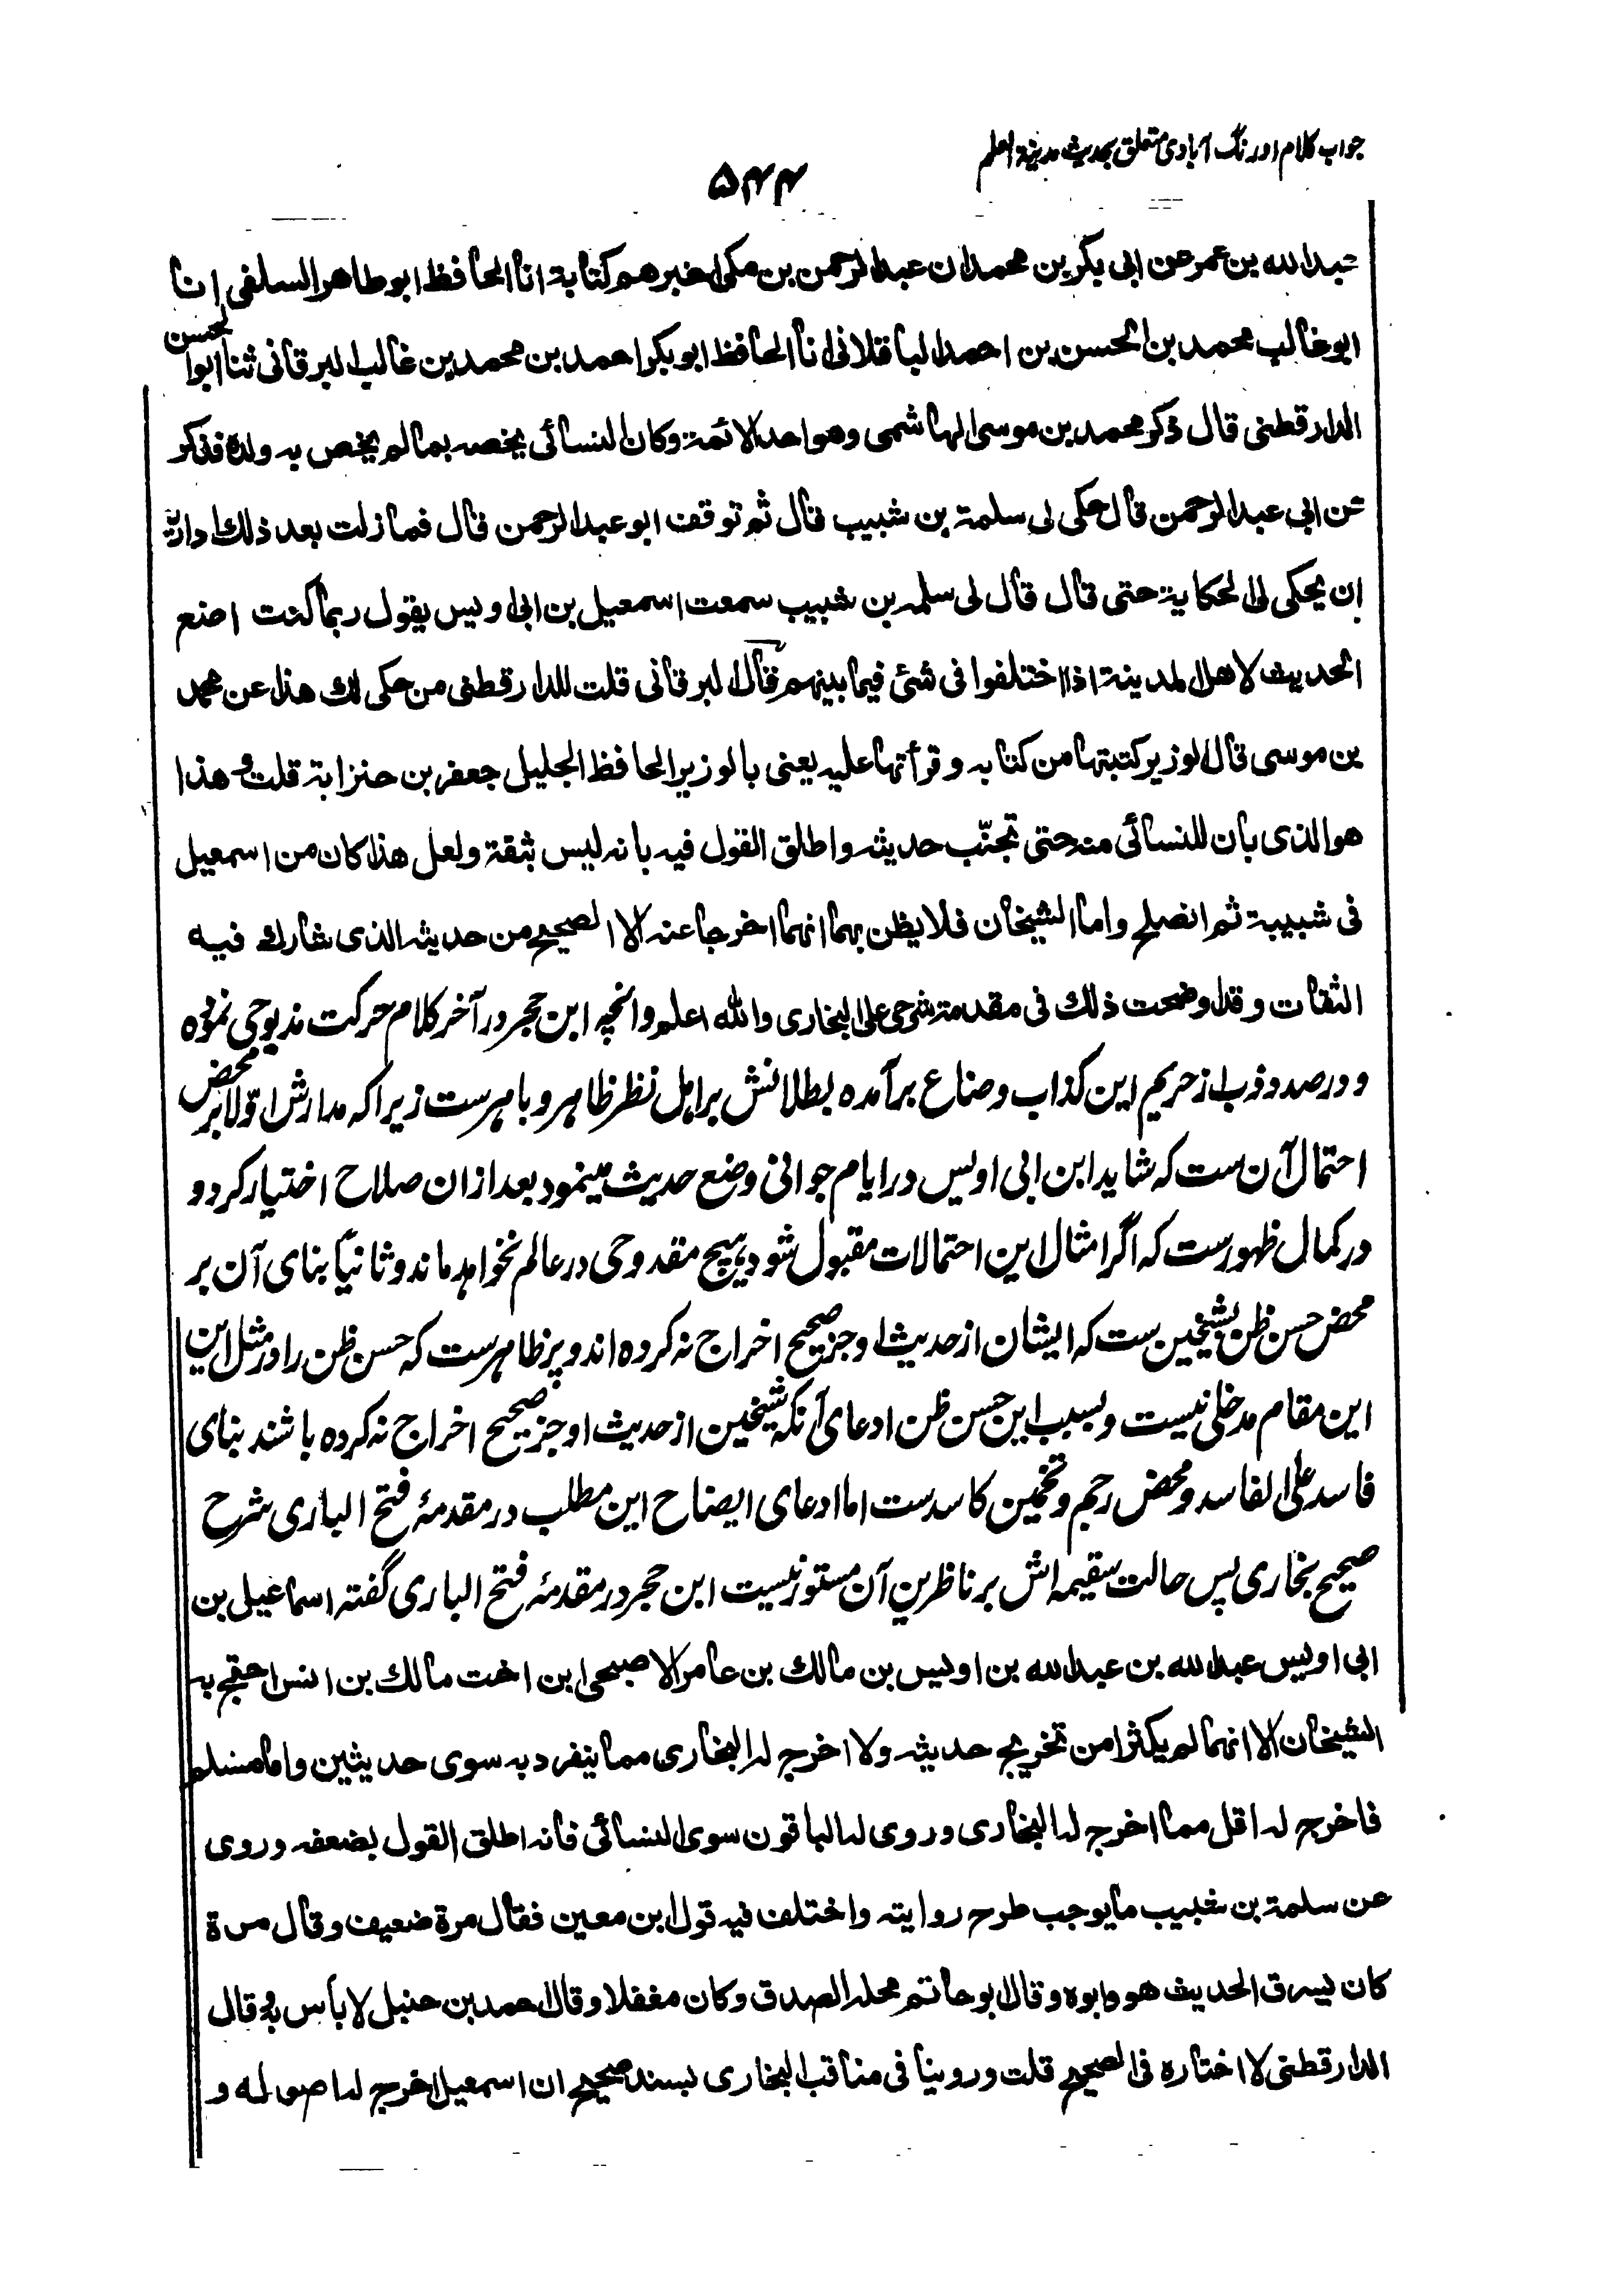 جواب کلام اورنگ آبادی متعلق بحدیث مدینة العلم
۵۴۴
عبدالله بن عمر عن ابی بکر بن محمد ان عبد الرحمن بن مکی اخبرهم کتابة انا الحافظ ابو طاهر السلفی انا
ابو غالب محمد بن الحسن بن احمد الباقلانی انا الحافظ ابو بکر احمد بن محمد بن غالب البرقانی ثنا ابوالحسن
الدارقطنی قال ذکر محمد بن موسی الهاشمی وهو احد الائمة وکان النسائی یخصه بما لم یخص به ولده فذکر
عن ابی عبد الرحمن قال حکی لی سلمة بن شبیب قال ثم توقف ابو عبد الرحمن قال فما زلت بعد ذلك اداریه
ان یحکی لی الحکایة حتی قال قال لی سلمه بن شبیب سمعت اسمعیل بن ابی اویس یقول ربما کنت اضع
الحدیث لاهل المدینة اذا اختلفوا فی شئ فیما بینهم قال البرقانی قلت للدارقطنی من حکی لك هذا عن محمد
بن موسی قال الوزیر کتبتها من کتابه وقرأتها علیه یعنی بالوزیر الحافظ الجلیل جعفر بن حنزابة قلت وهذا
هو الذی بان للنسائی منه حتی تجنّب حدیثه واطلق القول فیه بانه لیس بثقة ولعل هذا کان من اسمعیل
فی شبیبة ثم انصلح واما الشیخان فلا یظن بهما انهما اخرجا عنه الا الصحیح من حدیثه الذی شارك فیه
الثقات وقد اوضحت ذلك فی مقدمة شرحی علی البخاری والله اعلم وانچه ابن حجر در آخر کلام حرکت مذبوحی نموده
و در صدد ذب از حریم این کذاب وضاع برآمده بطلانش بر اهل نظر ظاهر و باهرست زیرا که مدارش اوّلا بر محض
احتمال آن ست که شاید ابن ابی اویس در ایام جوانی وضع حدیث مینمود بعد ازان صلاح اختیار کرد و
در کمال ظهورست که اگر امثال این احتمالات مقبول شود هیچ مقدوحی در عالم نخواهد ماند و ثانیاً بنای آن بر
محض حسن ظن بشیخین ست که ایشان از حدیث او جز صحیح اخراج نه کرده‌اند و پر ظاهرست که حسن ظن را در مثل این
این مقام مدخلی نیست و بسبب این حسن ظن ادعای آنکه شیخین از حدیث او جز صحیح اخراج نه کرده باشند بنای
فاسد علی الفاسد و محض رجم و تخمین کاسدست اما ادعای ایضاح این مطلب در مقدمهٔ فتح الباری شرح
صحیح بخاری پس حالت سقیمه اش بر ناظرین آن مستور نیست ابن حجر در مقدمهٔ فتح الباری گفته اسماعیل بن
ابی اویس عبدالله بن عبدالله بن اویس بن مالك بن عامر الاصبحی ابن اخت مالك بن انس احتج به
الشیخان الا انهما لم یکثرا من تخریج حدیثه ولا اخرج له البخاری مما ینفرد به سوی حدیثین واما مسلم
فاخرج له اقل مما اخرج له البخاری وروی له الباقون سوی النسائی فانه اطلق القول بضعفه وروی
عن سلمة بن شبیب ما یوجب طرح روایته واختلف فیه قول ابن معین فقال مرة ضعیف وقال مرة
کان یسرق الحدیث هو وابوه وقال ابو حاتم محله الصدق وکان مغفلا وقال احمد بن حنبل لا بأس به وقال
الدارقطنی لا اختاره فی الصحیح قلت وروینا فی مناقب البخاری بسند صحیح ان اسمعیل اخرج له اصوله و